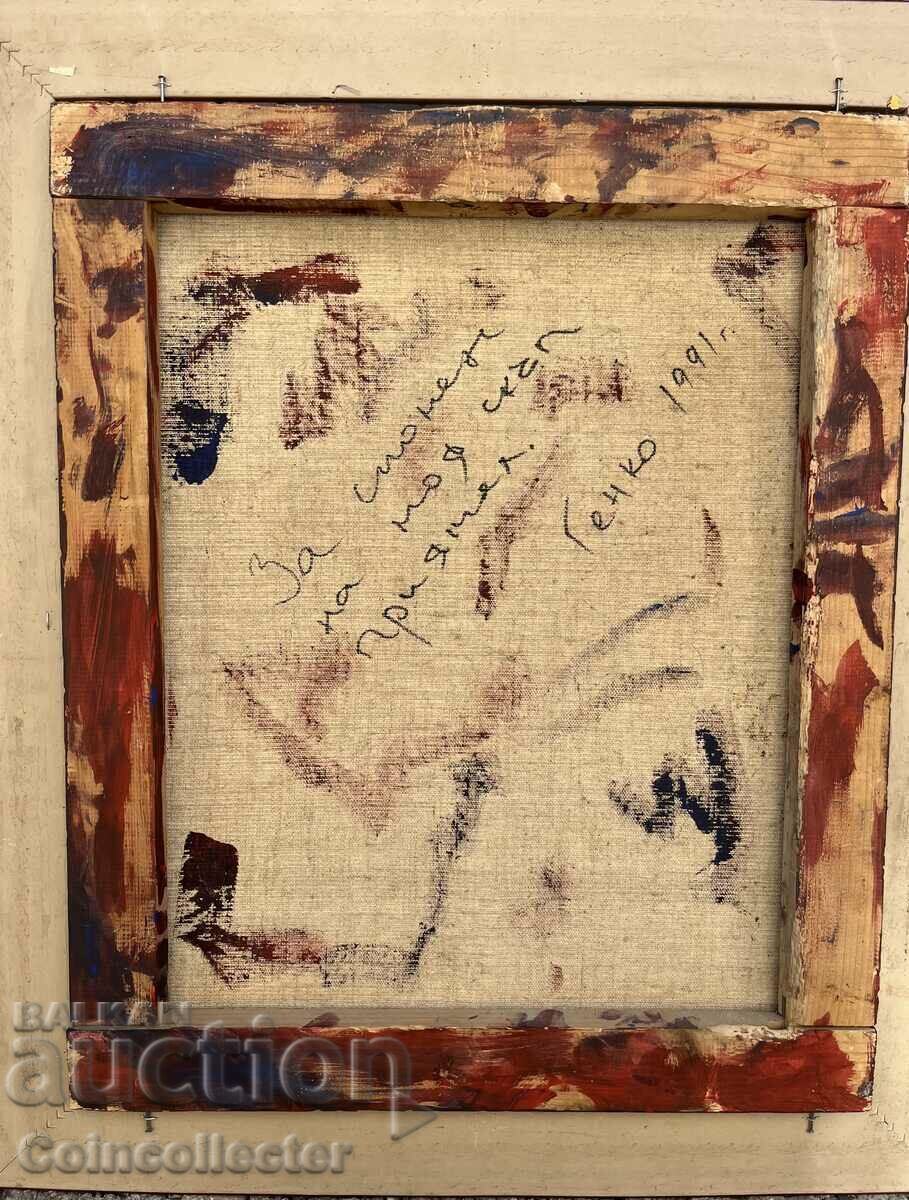 За спомен
на моя скъп
приятел.
Генко 1991 г.
BALKAN
auction
Coincollecter